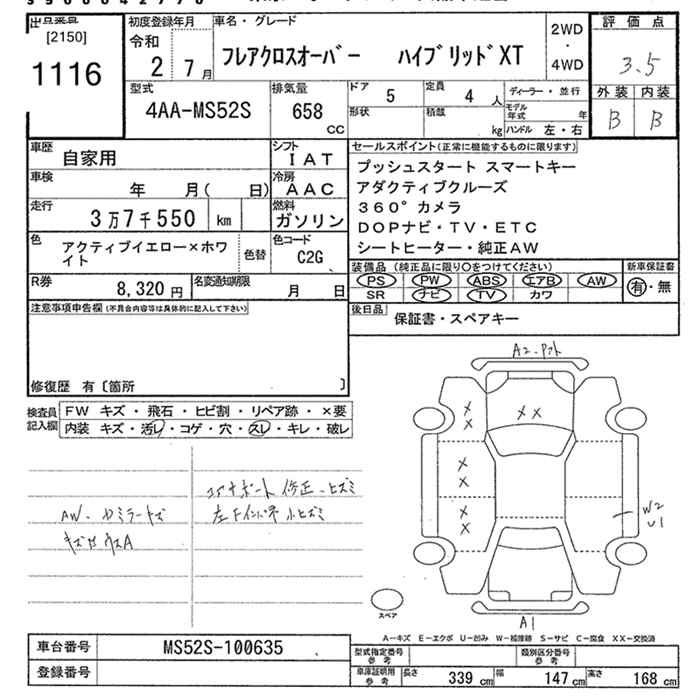 出品番号 初度登録年月 車名・グレード 2WD 評価点
[2150] 令和 ・
1116 2年 7月 フレアクロスオーバー ハイブリッドXT 4WD 3.5
型式 排気量 ドア 5 定員 4人 ディーラー・並行 外装 内装
4AA-MS52S 658 cc 形状 積載 kg モデル年式 年 B B
ハンドル 左・右
車歴 自家用 シフト IAT セールスポイント(正常に機能するものに限ります)
車検 年 月( 日) 冷房 AAC プッシュスタート スマートキー
アダクティブクルーズ
走行 3万7千550 km 燃料 ガソリン 360°カメラ
DOPナビ・TV・ETC
色 アクティブイエロー×ホワイト 色替 色コード C2G シートヒーター・純正AW
装備品(純正品に限り〇をつけてください) 新車保証書
R券 8,320円 名変通知期限 月 日 PS PW ABS エアB AW 有・無
SR ナビ TV カワ
注意事項申告欄(不具合内容等は具体的に記入して下さい) 後日品 保証書・スペアキー
修復歴 有〔箇所 〕
A2
検査員記入欄 FW キズ・飛石・ヒビ割・リペア跡・×要
内装 キズ・汚レ・コゲ・穴・スレ・キレ・破レ
×
× × ×
×
×
×
×
コアサポート 修正
AW W2
U1
A
スペア
A1
A-キズ E-エクボ U-凹み W-補修跡 S-サビ C-腐食 XX-交換済
車台番号 MS52S-100635 型式指定番号 参考 類別区分番号 参考
登録番号 車庫証明用 参考 長さ 339 cm 幅 147 cm 高さ 168 cm